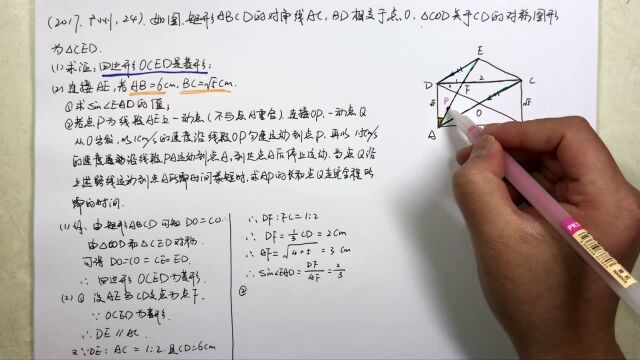 (2017.广州,24).如图.矩形ABCD的对角线AC,BD相交于点O,△COD关于CD的对称图形
为△CED.
(1)求证:四边形OCED是菱形;
(2)连接AE,若AB=6cm,BC=√5cm.
①求sin∠EAD的值;
②若点P为线段AE上一动点(不与点A重合).连接OP,一动点Q
从O出发,以1cm/s的速度沿线段OP匀速运动到点P,再以1.5cm/s
的速度匀速沿线段PA运动到点A,到达点A后停止运动.当点Q沿
上述路线运动到点A所需时间最短时,求AP的长和点Q走完全程所
需的时间.
(1)解:由矩形ABCD可知DO=CO.
由△COD和△CED对称.
可得DO=CO=CE=ED.
∴四边形OCED为菱形.
(2)①设AE与CD交点为点F.
∵OCED为菱形.
∴DE∥AC.
又∵DE:AC=1:2.且CD=6cm
∴DF:FC=1:2
∴DF=1/3CD=2cm
∴AF=√4+5=3cm
∴sin∠EAD=DF/AF=2/3
②
E
D
1
F
2
C
P
√5
O
√5
A